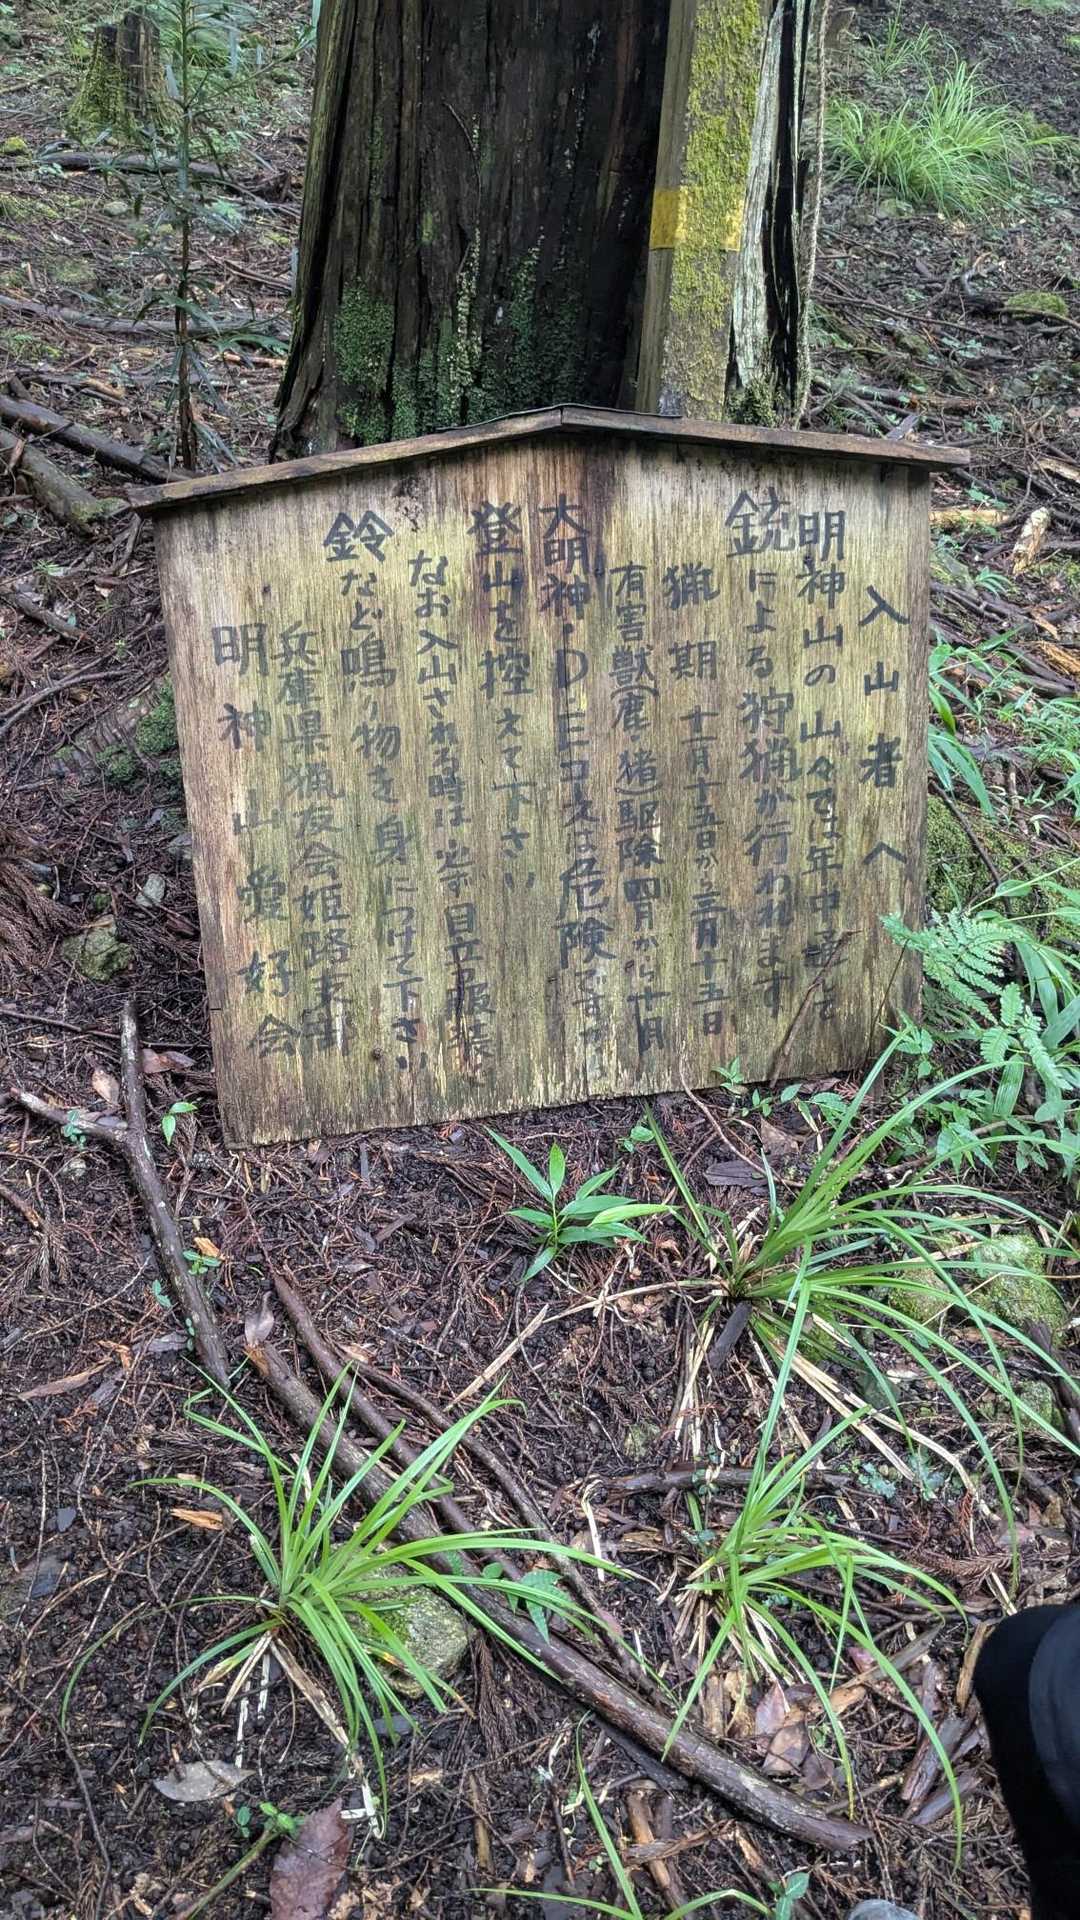 入山者へ
明神山の山々では年中通して
銃による狩猟が行われます
猟期 十一月十五日から三月十五日
有害獣(鹿・猪)駆除 四月から十月
大明神・Dミコエは危険ですから
登山を控えて下さい
なお入山される時は必ず目立つ服装と
鈴など鳴り物を身につけて下さい
兵庫県猟友会姫路支部
明神山愛好会